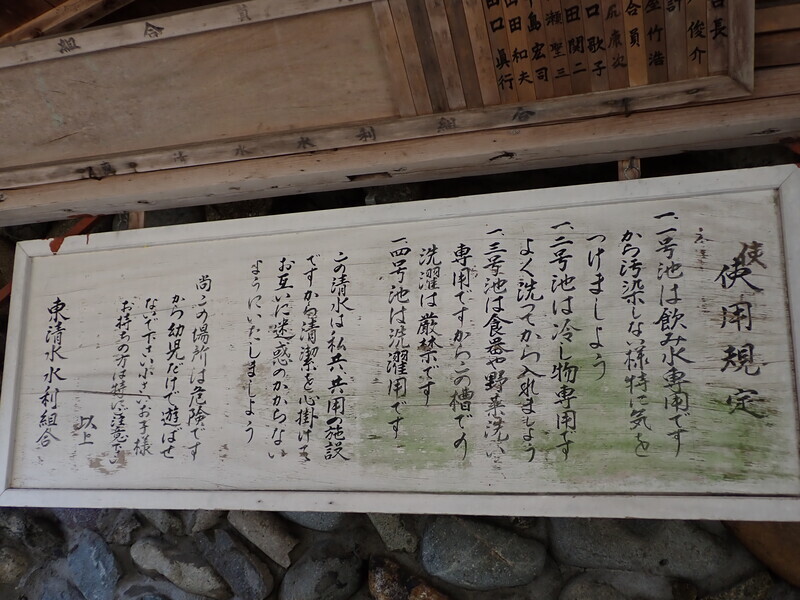 使用規定
一、一号池は飲み水専用です
から汚染しない様特に気を
つけましよう
一、二号池は冷し物専用です
よく洗つてから入れましよう
一、三号池は食器や野菜洗い
専用ですからこの槽での
洗濯は厳禁です
一、四号池は洗濯用です
この清水は私共、共用の施設
ですから清潔を心掛けて
お互いに迷惑のかからない
ようにいたしましよう
尚この場所は危険です
から幼児だけで遊ばせ
ないで下さい小さいお子様
お持ちの方は特に注意下さい
以上
東清水水利組合
俊介
計
竹治
組合員
尻慶次
口歌子
田関二
瀬聖三
中島宏司
山田和夫
田口眞行
水利組合
組合員